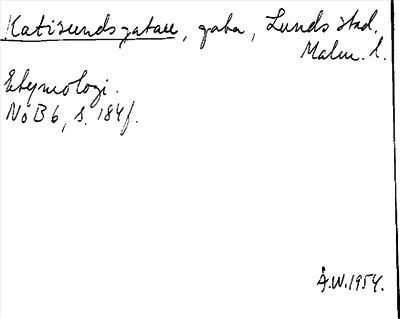 Katisundsgatan, gata, Lunds stad,
Malm. l.
Etymologi.
NoB 6, s. 184f.
Å.W. 1954.